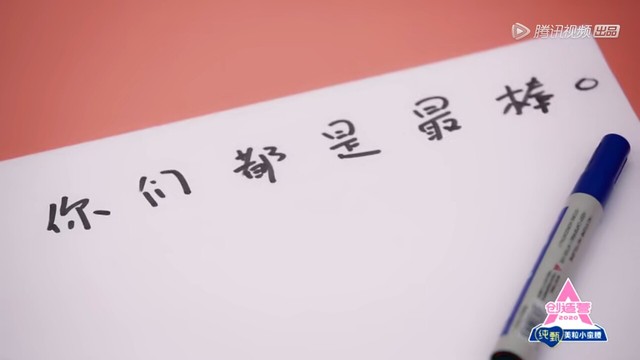 腾讯视频 出品
你们都是最棒。
创造营
2020
纯甄
美粒小蛮腰